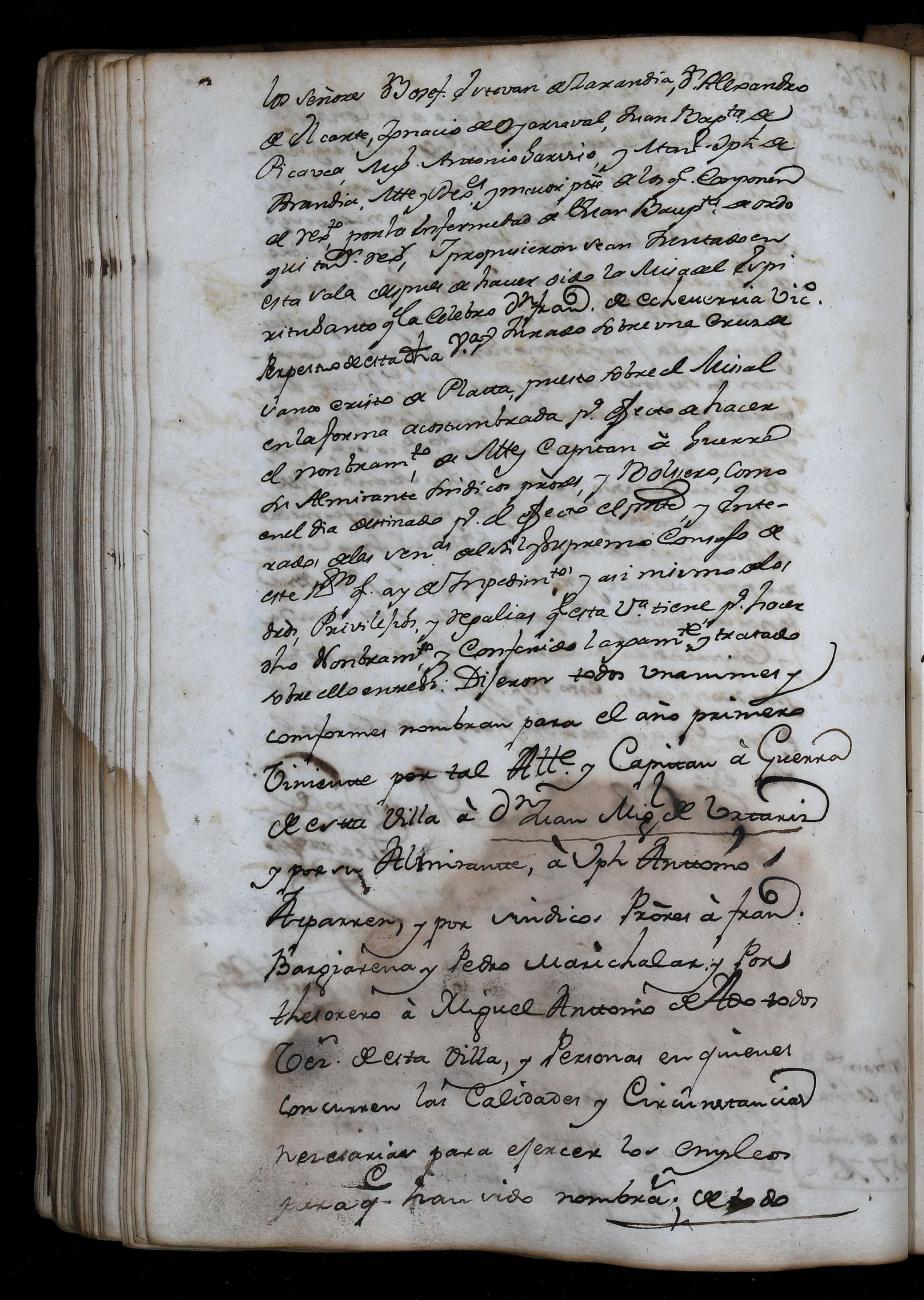 los señores Dn Josef Estevan de Larandia, Dn Alexandro
de Ucarte, Ignacio de Oyarzaval, Juan Bapta. de
Picavea, Migl. Antonio y Manl. Jph. de
Arandia, Atte y mayor pte. de los q. Componen
el por la Infermedad de Juan Baupta.
propusieron sean Juntado en
esta sala despues de haver oido la Misa del Espi
ritu Santo q. la Celebro Dn. Fran. de Echeverria Vico.
Perpetuo de esta dha Va. y Jurado sobre una Cruz de
santo cristo de Platta, puesto sobre el Missal
en la forma acostumbrada pa. efecto de hacer
el nonbramto. de Atte y Capitan à Guerra
su Almirante Sindicos prôres, y Bolsero, Como
en el dia destinado pa. el efecto el pnte, y Ente-
rados de las Supremo Consejo de
este Rno. q. ay de Impedimtos. y asi mismo de los
dros, Privilejios, y regalias q. esta Va. tiene pa. hacer
dho Nonbramto. y Conferido largamte. y tratado
sobre ello entre si. Dijeron todos unanimes y
conformes nombran para el año primero
Viniente por tal Atte. y Capitan à Guerra
de esta Villa à Dn. Juan Migl. de Urtariz
y por su Almirante, à Jph Anttonio
Arparren, y por sindicos Prôres à fran.
Bargiarena y Pedro Marichalar, y Por
thesorero à Miguel Anttonio de Ado todos
Vez. de esta Villa, y Personas en quienes
Concurren las Calidades y Circunstancias
nesesarias para ejercer los empleos
para q. han sido nombra; de todo